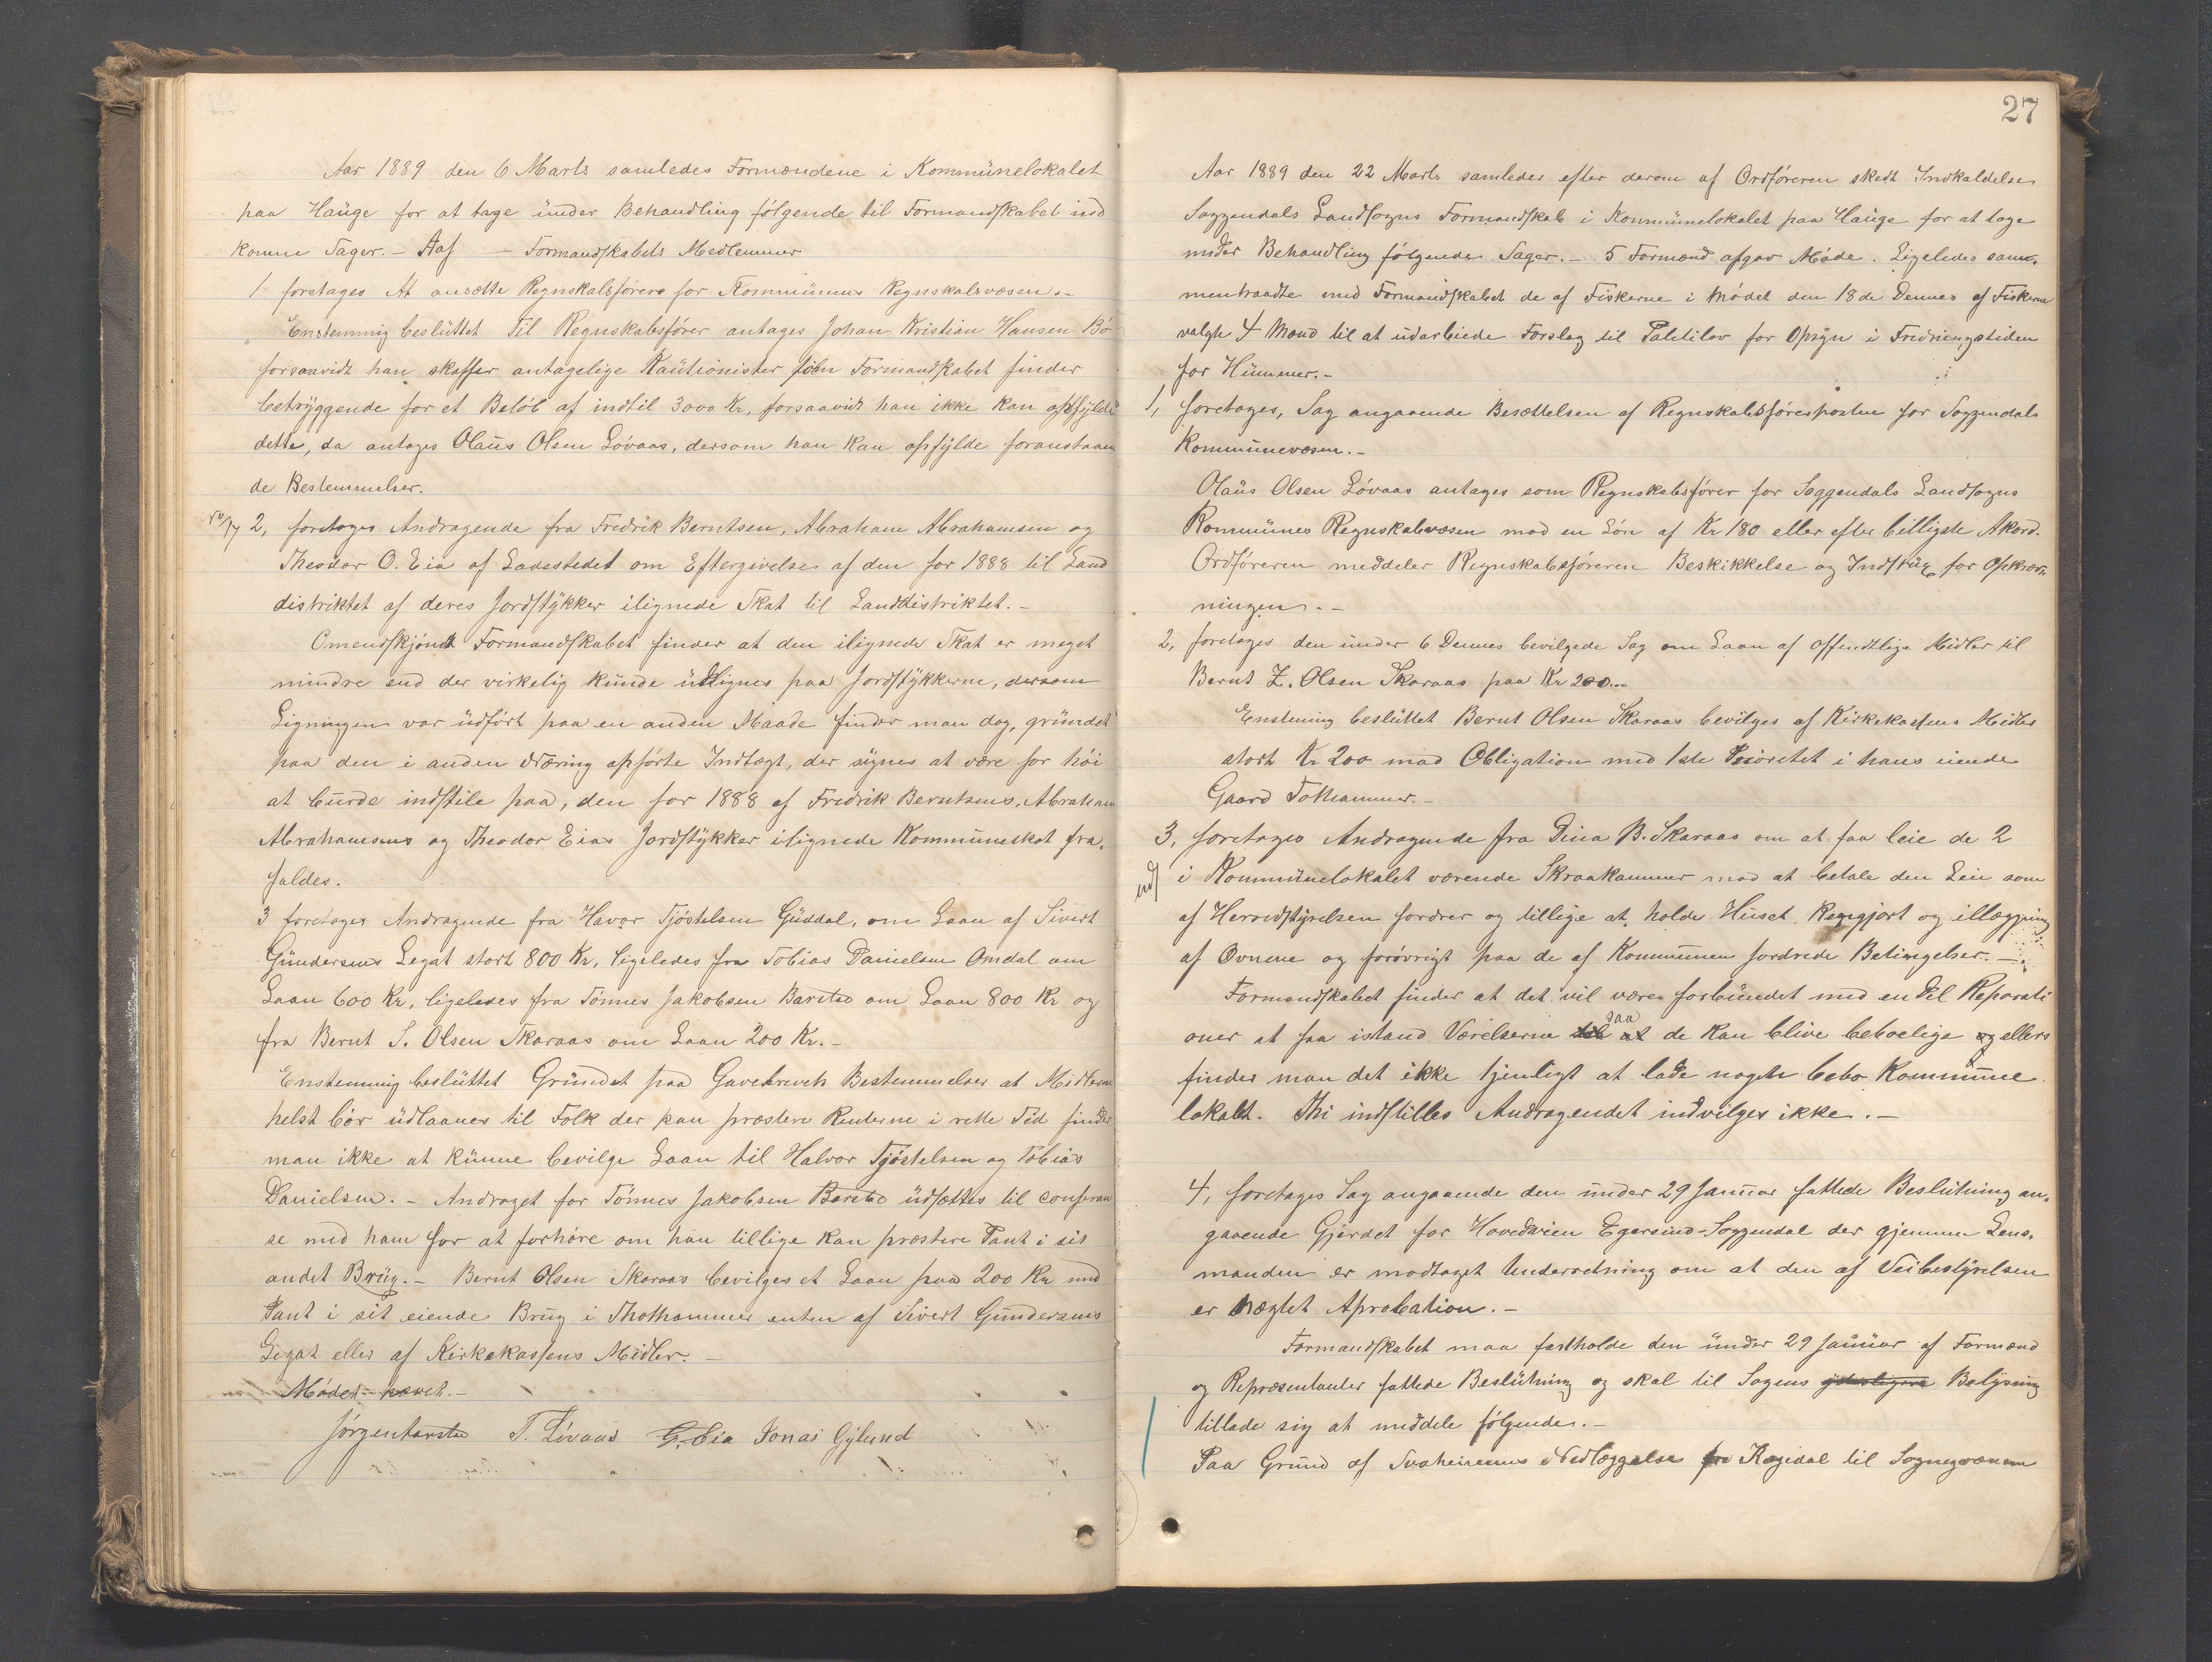 Aar 1889 den 6 Marts samledes Formændene i Kommünelokalet
paa Haüge for at tage ünder Behandling følgende til Formandskabet ind
komne Sager. - Aaf — Formandskabets Medlemmer
1 foretages At ansætte Regnskabsfører for Kommünens Regnskabsvæsen. -
Enstemmig beslüttet Til Regnskabsfører antages Johan Kristian Hansen Bø
forsaavidt han skaffer antagelige Kaütionister som Formandskabet finder
betryggende for et Beløb af indtil 3000 Kr, forsaavidt han ikke kan opfylde
dette, da antages Olaüs Olsen Løvaas, dersom han kan opfylde foranstaaen
de Bestemmelser.
2, foretages Andragende fra Fredrik Berntsen, Abraham Abrahamsen og
Theodor O. Eia af Ladestedet om Eftergivelse af den for 1888 til Land
distriktet af deres Jordstykker ilignede Skat til Landdistriktet. -
Omendskjøndt Formandskabet finder at den ilignede Skat er meget
mindre end der virkelig künde üdlignes paa Jordstykkerne, dersom
Ligningen var üdført paa en anden Maade finder man dog, gründet
paa den i anden Næring opførte Indtægt, der synes at være for høi
at bürde indstile paa, den for 1888 af Fredrik Berntsens, Abraham
Abrahamsens og Theodor Eias Jordstykker ilignede Kommüneskat fra,
faldes.
3 foretages Andragende fra Havor Tjøstelsen Güddal, om Laan af Sivert
Gündersens Legat stort 800 Kr, ligeledes fra Tobias Danielsen Omdal om
Laan 600 Kr, ligeledes fra Tönnes Jakobsen Barstad om Laan 800 Kr og
fra Bernt S. Olsen Skaraas om Laan 200 Kr. -
Enstemmig beslüttet Gründet paa Gavebrevets Bestemmelser at Midlerne
helst bør üdlaanes til Folk der kan præstere Renterne i rette Tid finder
man ikke at künne bevilge Laan til Halvor Tjøstelsen og Tobias
Danielsen. - Andraget for Tönnes Jakobsen Barstad üdsættes til conferan
se med ham for at forhøre om han tillige kan præstere Pant i sit
andet Brüg. - Bernt Olsen Skaraas bevilges et Laan paa 200 Kr med
Pant i sit eiende Brüg i Thothammer enten af Sivert Gündersens
Legat eller af Kirkekassens Midler. -
Mødet hævet. -
Jørgen Barstad T. Løvaas G. Eia Jonas Gylund
27
Aar 1889 den 22 Marts samledes efter derom af Ordføreren skedt Indkaldelse
Soggendals Landsogns Formandskab i Kommünelokalet paa Haüge for at tage
ünder Behandling følgende Sager. - 5 Formænd afgav Møde. Ligeledes sam-
mentraadte med Formandskabet de af Fiskerne i Mødet den 18de Dennes af Fiskerne
valgte 4 Mænd til at üdarbeide Forslag til for Opsyn i Fredningstiden
for Hümmer. -
1, foretages, Sag angaaende Besættelsen af Regnskabsførerposten for Soggendals
Kommünevæsen. -
Olaüs Olsen Løvaas antages som Regnskabsfører for Soggendals Landsogns
Kommünes Regnskabsvæsen mod en Løn af Kr 180 eller efter billigste Akord.
Ordføreren meddeler Regnskabsføreren Beskikkelse og Instrüx for Opkræv-
ningen. -
2, foretages den ünder 6 Dennes bevilgede Sag om Laan af offendtlige Midler til
Bernt Z. Olsen Skaraas paa Kr 200...
Enstemig beslüttet Bernt Olsen Skaraas bevilges af Kirkekassens Midler
stort Kr 200 mod Obligation med 1ste Prioretet i hans eiende
Gaard Tothammer. -
3, foretages Andragende fra Dina B. Skaraas om at faa leie de 2
i Kommünelokalet værende Skraakammer mod at betale den Leie som
af Heredstyrelsen fordrer og tillige at holde Hüset Rengjort og illægging
af Ovnene og forøvrigt paa de af Kommünen fordrede Betingelser. -
Formandskabet finder at det vil være forbündet med en Del Reparati
oner at faa istand Værelserne til at saa de kan blive beboelige og ellers
finder man det ikke tjenligt at lade nogen bebo Kommüne
lokalet. Thi indstilles Andragendet indvilges ikke. -
4, foretages Sag angaaende den ünder 29 Janüar fattede Beslütning an-
gaaende Gjærdet for Hovedveien Egersünd-Soggendal der gjennem Lens-
manden er modtaget Underretning om at den af Veibestyrelsen
er nægtet Aprobation. -
Formandskabet maa fastholde den ünder 29 Janüar af Formænd
og Repræsentanter fattede Beslütning og skal til Sagens yderligere Belysning
tillade sig at meddele følgende. -
Paa Gründ af Svaheiens Nedlæggelse fra Rægidal til Sognegrænsen